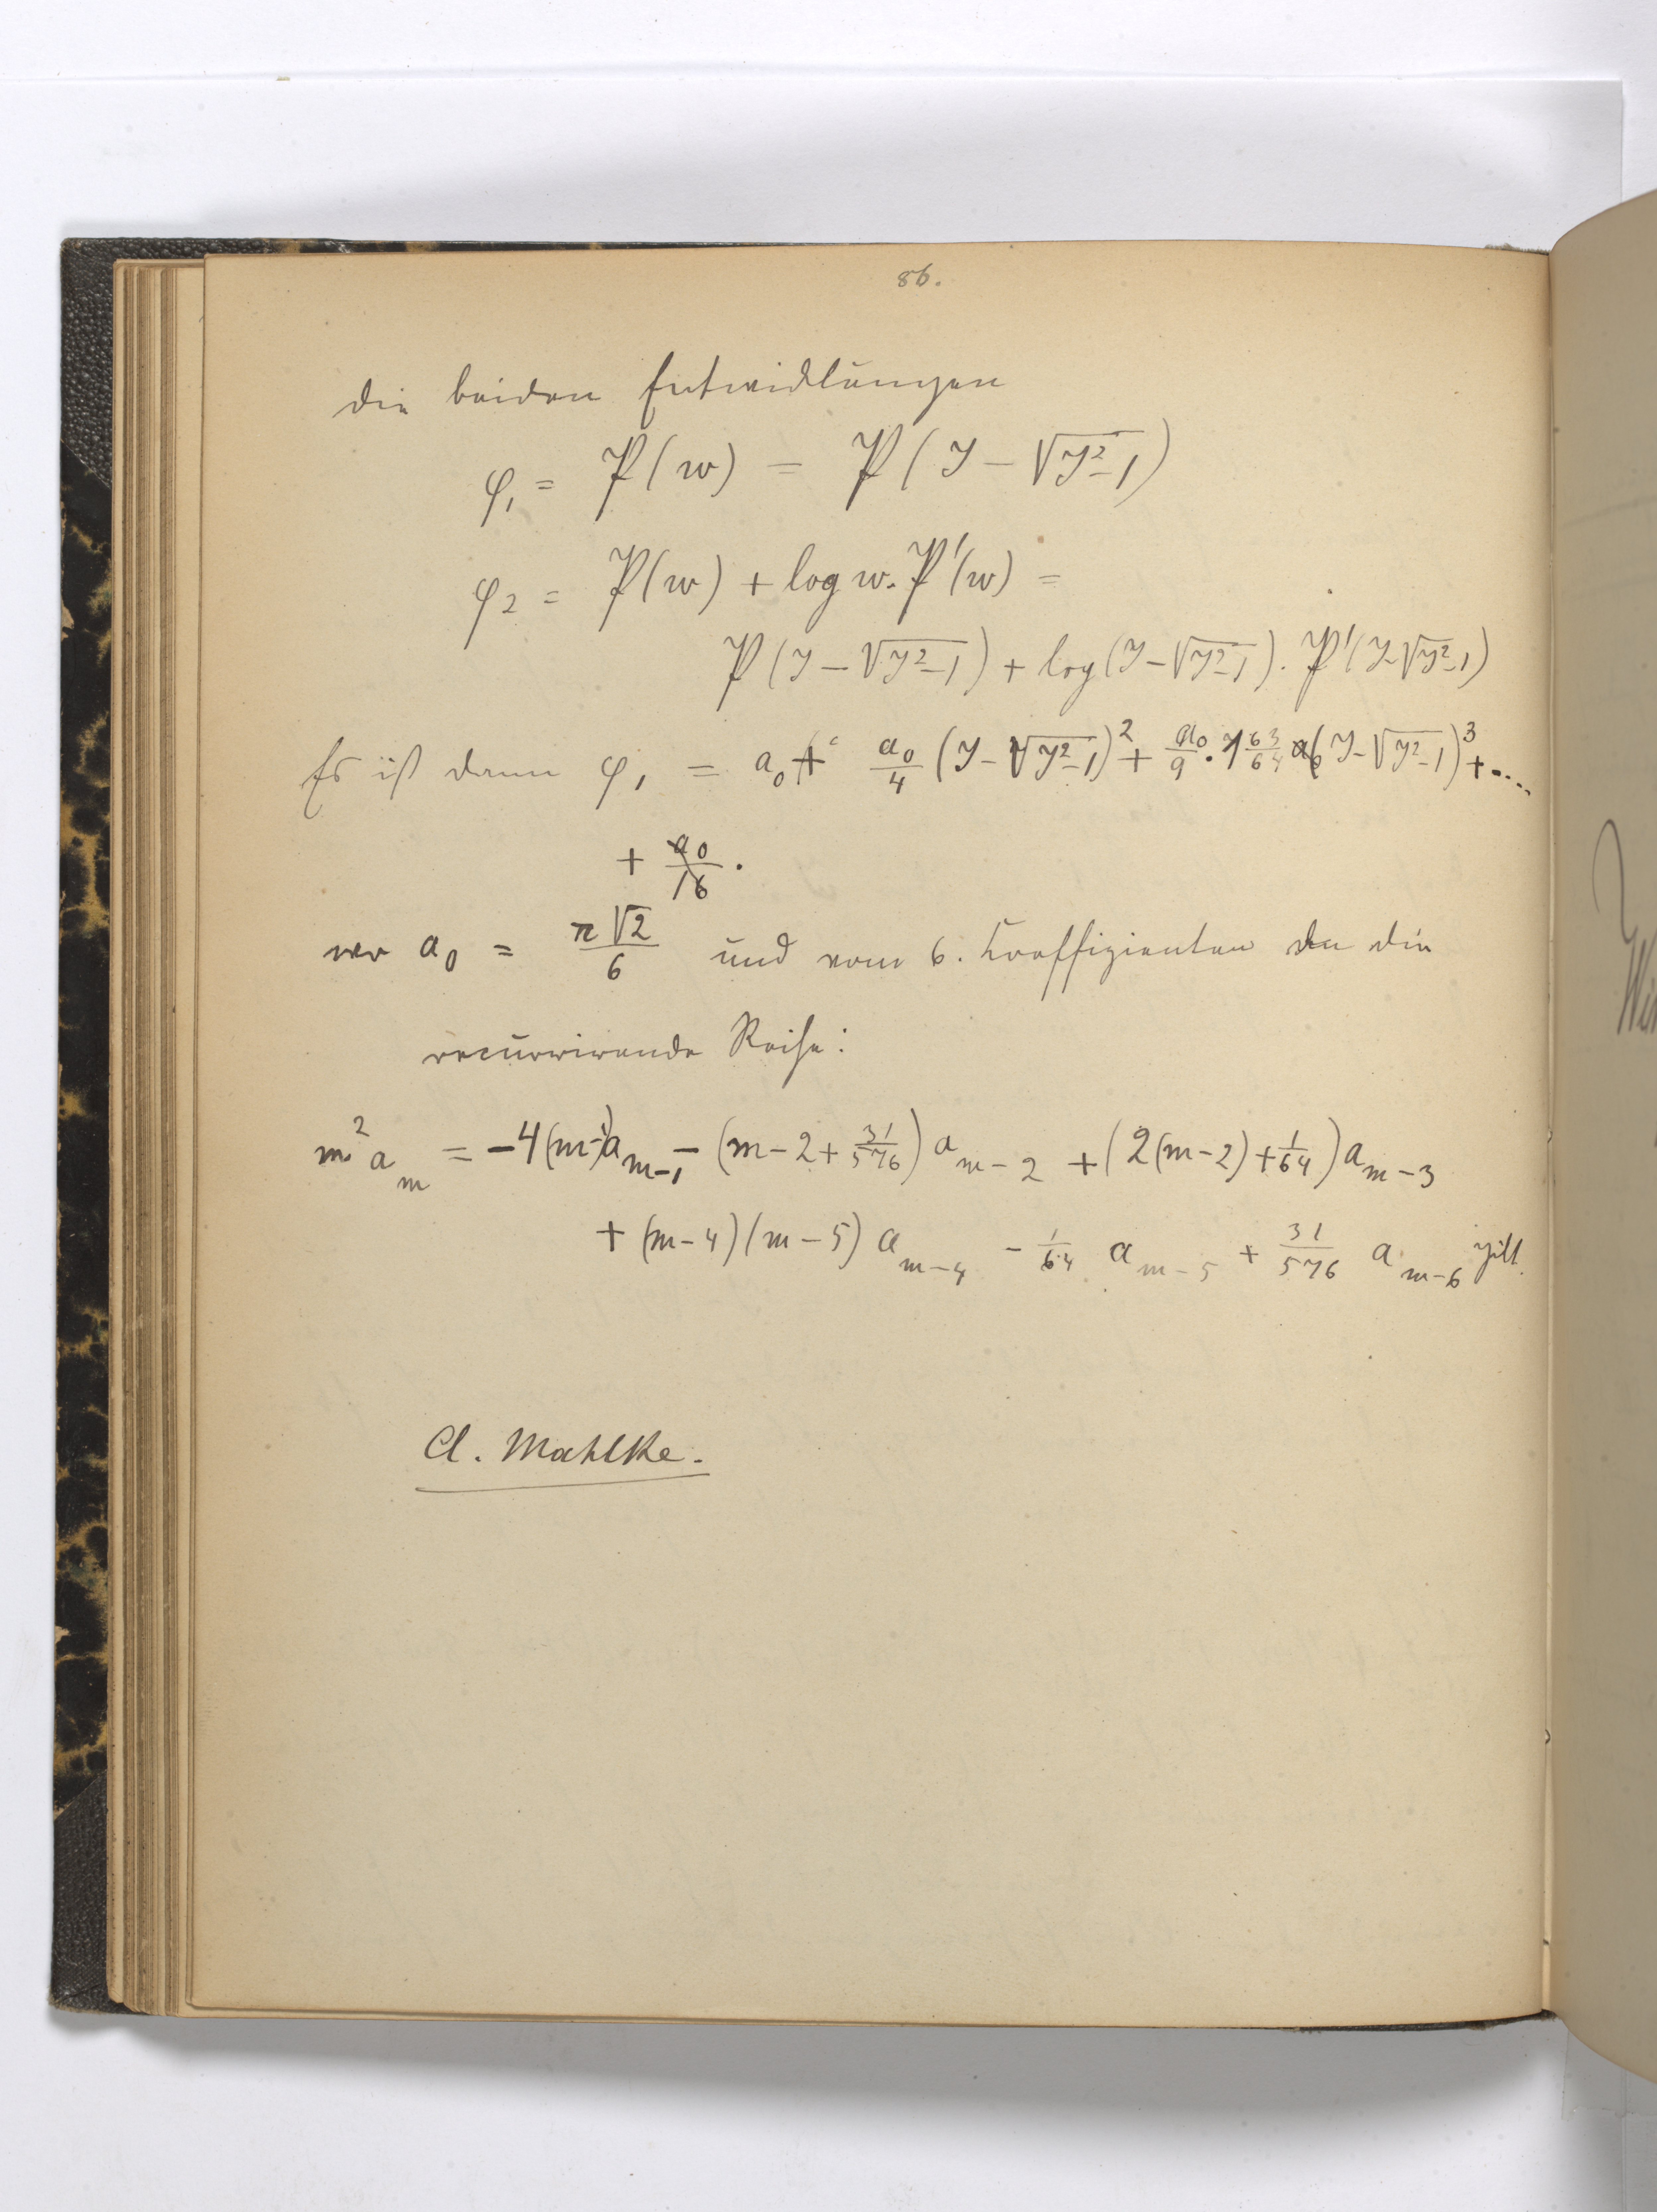 86.
die beiden Entwicklungen
φ₁ = P(w) = P(y − √(y²−1))
φ₂ = P(w) + log w. P'(w) =
P(y − √(y²−1)) + log(y − √(y²−1)). P'(y−√(y²−1))
Es ist dann φ₁ = a₀ + a₀/4 (y − √(y²−1))² + a₀/9 · 1 63/64 (y − √(y²−1))³ + ....
+ a₀/16 .
wo a₀ = π√2/6 und vom 6. Koeffizienten an die
recurrirende Reihe:
m² aₘ = −4(m−1)aₘ₋₁ − (m−2+31/576) aₘ₋₂ + (2(m−2)+1/64) aₘ₋₃
+ (m−4)(m−5) aₘ₋₄ − 1/64 aₘ₋₅ + 31/576 aₘ₋₆ gilt.
A. Mahlke.
Win